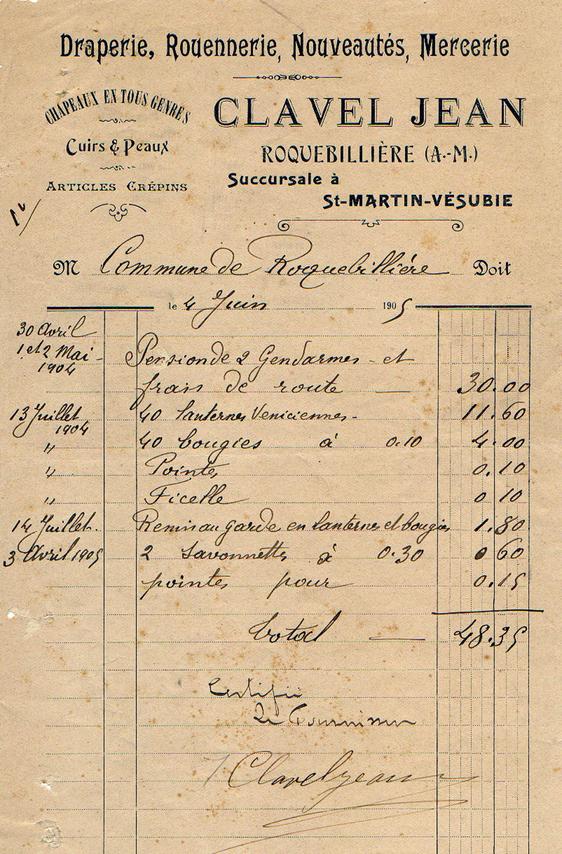 Draperie, Rouennerie, Nouveautés, Mercerie
CHAPEAUX EN TOUS GENRES
Cuirs & Peaux
ARTICLES CRÉPINS
CLAVEL JEAN
ROQUEBILLIÈRE (A.-M.)
Succursale à
St-MARTIN-VÉSUBIE
M Commune de Roquebilliére Doit
le 4 Juin 1905
30 Avril
1 et 2 Mai 1904 Pension de 2 Gendarmes et
frais de route — 30.00
13 Juillet 1904 40 lanternes Veniciennes - 11.60
" 40 bougies à 0.10 4.00
" Pointes 0.10
" Ficelle 0 10
14 Juillet. Remis au garde en lanternes et bougies 1.80
3 Avril 1905 2 Savonnettes à 0.30 0 60
pointes pour 0.15
Total — 48.35
Certifié
Le Fournisseur
Clavel Jean